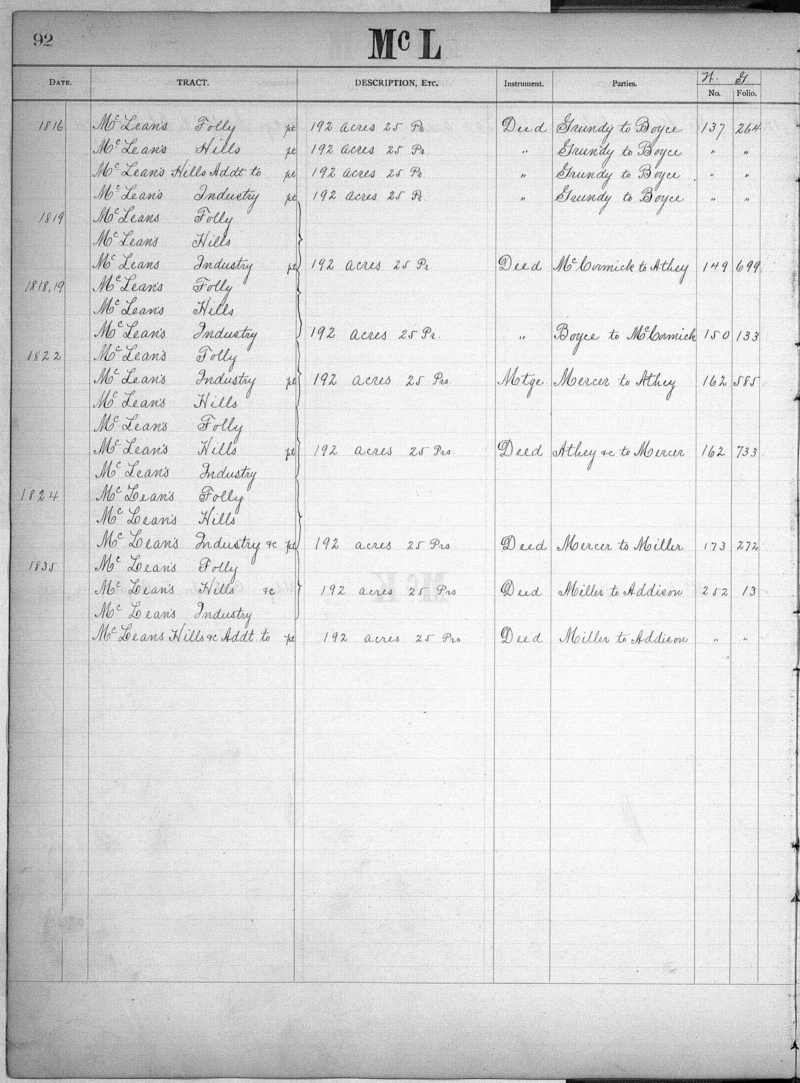 92
McL
DATE. TRACT. DESCRIPTION, ETC. Instrument. Parties. W. G.
No. Folio.
1816 McLean's Folly pt 192 acres 25 Ps Deed Grundy to Boyce 137 264
McLean's Hills pt 192 acres 25 Ps " Grundy to Boyce " "
McLean's Hills Addt. to pt 192 acres 25 Ps " Grundy to Boyce " "
McLean's Industry pt 192 acres 25 Ps " Grundy to Boyce " "
1819 McLeans Folly
McLean's Hills
McLeans Industry pt 192 acres 25 Pr Deed McCormick to Athey 149 699
1818,19 McLean's Folly
McLean's Hills
McLean's Industry 192 acres 25 Pr. " Boyce to McCormick 150 133
1822 McLean's Folly
McLean's Industry pt 192 acres 25 Prs Mtge Mercer to Athey 162 585
McLean's Hills
McLean's Folly
McLean's Hills pt 192 acres 25 Prs Deed Athey &c to Mercer 162 733
McLean's Industry
1824 McLean's Folly
McLean's Hills
McLean's Industry &c pt 192 acres 25 Prs Deed Mercer to Miller 173 272
1835 McLean's Folly
McLean's Hills &c 192 acres 25 Prs Deed Miller to Addison 252 13
McLean's Industry
McLeans Hills &c Addt. to pt 192 acres 25 Prs Deed Miller to Addison " "